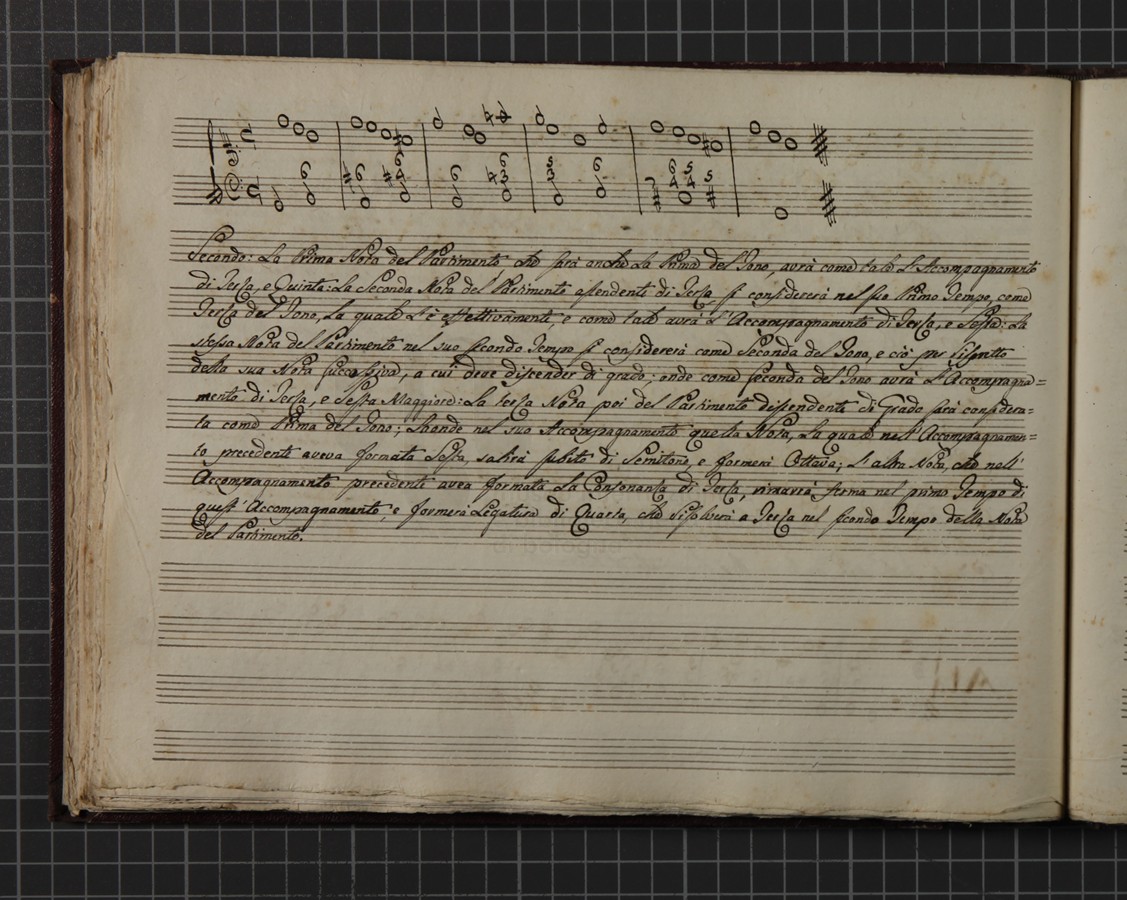 6 6 6 6 6 5 6 6 5
4 3 3 4 4 5
Secondo: La Prima Nota del Partimento che sarà anche la Prima del Tono, avrà come tale l'Accompagnamento
di Terza, e Quinta: La Seconda Nota del Partimento assendente di Terza si considererà nel suo Primo Tempo, come
Terza del Tono, la quale l'è effettivamente, e come tale avrà l'Accompagnamento di Terza, e Sesta: La
stessa Nota del Partimento nel suo secondo Tempo si considererà come Seconda del Tono, e ciò per rispetto
della sua Nota successiva, a cui deve discender di grado; onde come seconda del Tono avrà l'Accompagna=
mento di Terza, e Sesta Maggiore: La terza Nota poi del Partimento dissendente di Grado sarà considera=
ta come Prima del Tono; Laonde nel suo Accompagnamento quella Nota, la quale nell'Accompagnamen=
to precedente aveva formata Sesta, salirà subito di Semitono, e formerà Ottava; l'altra Nota, che nell'
Accompagnamento precedente avea formata la Consonanza di Terza, rimarrà ferma nel primo Tempo di
quest'Accompagnamento, e formerà Legatura di Quarta, che risolverà a Terza nel secondo Tempo della Nota
del Partimento.